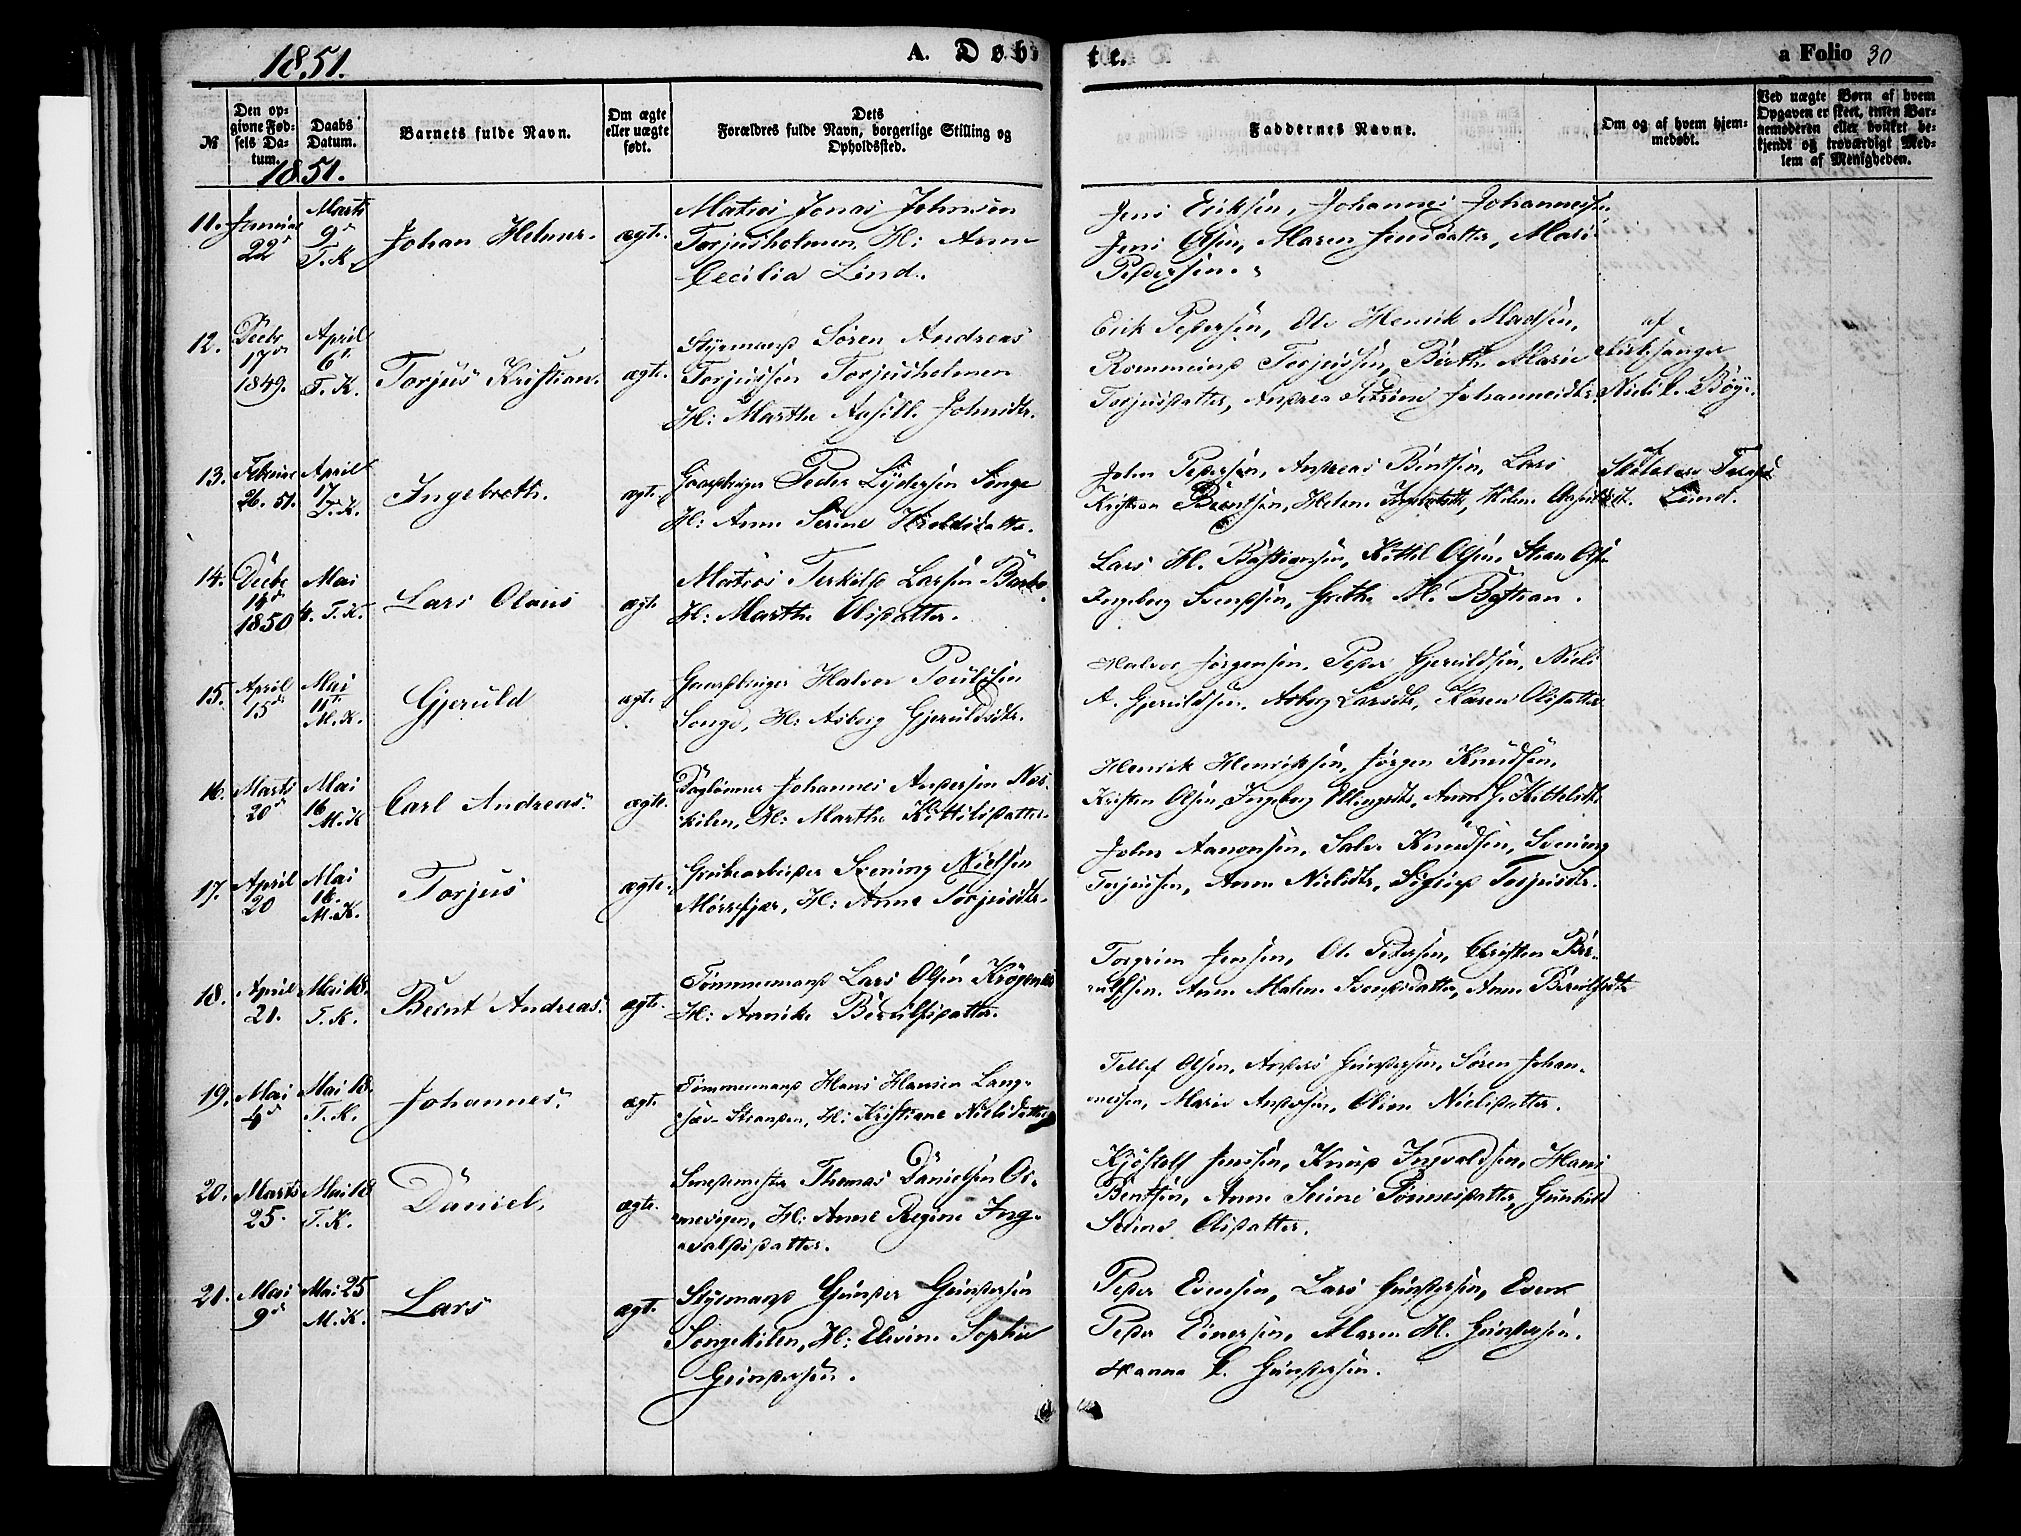 1851.
A. Døbte.
a Folio 30
№
Den opgivne Fødsels Datum.
Daabs Datum.
Barnets fulde Navn.
Om ægte eller uægte født.
Dets Forældres fulde Navn, borgerlige Stilling og Opholdssted.
Faddernes Navne.
Om og af hvem hjemmedøbt.
Ved uægte Børn af hvem Opgaven er skeet, enten Barnemoderen eller hvilket bekjendt og troværdigt Medlem af Menigheden.
1851.
11. Januar 22de
Marts 9de T. K.
Johan Helmer.
ægte.
Matros Jonas Johnsen
Torjusholmen, H: Anne
Cecilia Lind.
Jens Eriksen, Johannes Johannesen
Jens Olsen, Maren Jensdatter, Maria
Pedersen.
12. Decbr 17de 1849.
April 6te T. K.
Torjus Kristian.
ægte.
Styrmand Søren Andreas
Torjussen Torjusholmen
H: Marthe Johnsdtr.
Erik Pedersen, Ole Henrik Madsen,
Torjussen, Birthe Marie
Torjusdatter, Andrea Johannesdtr.
af
Kirksanger
Niels Bøye.
13. Februar 26. 51.
April 17 T. K.
Ingebreth.
ægte
Gaardbruger Peder Lydersen Songe
H: Anne Serine
John Pedersen, Andreas Bentsen, Lars
Kristian Berntsen, Helene
af
Skolelærer
Lund.
14. Decbr 14de 1850
Mai 4. T. K.
Lars Olaus
ægte
Matros Terkild Larsen Barbo.
H: Marthe Olsdatter.
Lars H. Bastiansen, Kittil Olsen,
Ingeborg Svendsen, Grethe M. Bastian.
15. April 15de
Mai 11te M. K.
Gjeruld
ægte.
Gaardbruger Halvor Poulsen
Songe, H: Asborg Gjeruldsdtr.
Halvor Jørgensen, Peder Gjeruldsen, Niels
A. Gjeruldsen, Asborg Larsdtr, Karen Olsdatter
16. Marts 20de
Mai 16 M. K
Carl Andreas.
ægte.
Daglønner Johannes Andersen Nes-
kilen, H: Marthe Kittilsdatter.
Henrik Henriksen, Jørgen Knudsen,
Kristen Olsen, Ingeborg Ellingsdtr, Anne J. Kittelsdtr
17. April 20
Mai 16. M. K.
Torjus
ægte.
Grubearbeider Svening Nielsen
Mørefjær, H: Anne Torjusdtr.
John Aanonsen, Salve Knudsen, Svening
Torjusen, Anne Nielsdtr, Sigrid Torjusdtr.
18. April 21.
Mai 18. T. K.
Bernt Andreas.
ægte.
Tømmermand Lars Olsen Krøgenes
H: Annike Berulfsdatter.
Torgrim Jensen, Ole Pedersen, Christen Be-
rulfsen. Anne Malene Svendsdatter, Anne Berulfsdtr
19. Mai 4de
Mai 18. T. K.
Johannes.
ægte.
Tømmermand Hans Hansen Lang-
sæv-Stranden, H: Kristiane Nielsdatter
Tellef Olsen, Anders Gundersen, Søren Johan-
nessen, Marie Andersen, Oline Nielsdatter.
20. Marts 25.
Mai 18 T. K.
Daniel.
ægte.
Smedmester Thomas Danielsen
H: Anne Regine Ing-
valdsdatter.
Kjøstolf Jensen, Knud Ingvaldsen, Hans
Bentsen, Anne Serine Tønnesdatter, Gunhild
Serine Olsdatter.
21. Mai 9de
Mai 25 M. K.
Lars
ægte.
Styrmand Gunder Gundersen
Songekilen, H: Elvine Sophie
Gundersen.
Peder Evensen, Lars Gundersen, Even
Peder Evensen, Maren H. Gundersen.
Hanna Gundersen.